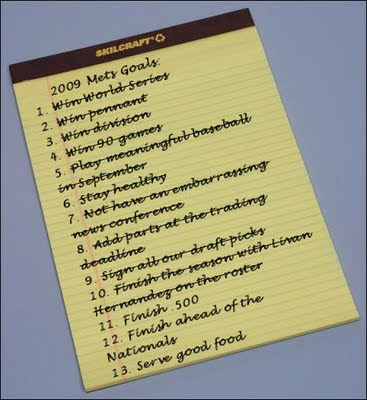 SKILCRAFT
2009 Mets Goals:
1. Win World Series
2. Win pennant
3. Win division
4. Win 90 games
5. Play meaningful baseball
in September
6. Stay healthy
7. Not have an embarrassing
news conference
8. Add parts at the trading
deadline
9. Sign all our draft picks
10. Finish the season with Livan
Hernandez on the roster
11. Finish .500
12. Finish ahead of the
Nationals
13. Serve good food